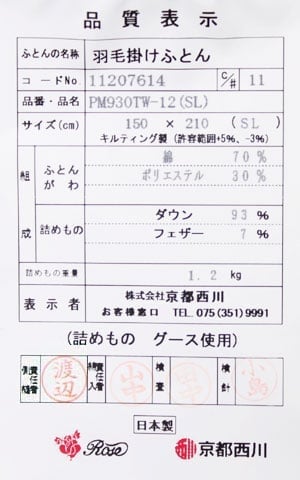 品質表示
ふとんの名称 羽毛掛けふとん
コードNo. 11207614 C/# 11
品番・品名 PM930TW-12(SL)
サイズ(cm) 150 × 210 (SL)
キルティング製(許容範囲+5%、-3%)
組成
ふとんがわ
綿 70%
ポリエステル 30%
詰めもの
ダウン 93%
フェザー 7%
詰めもの重量 1.2 kg
表示者 株式会社京都西川
お客様窓口 TEL.075(351)9991
(詰めもの グース使用)
責任者 渡辺
責任者 山中
検査 田中
検針 小島
日本製
Rose 京都西川